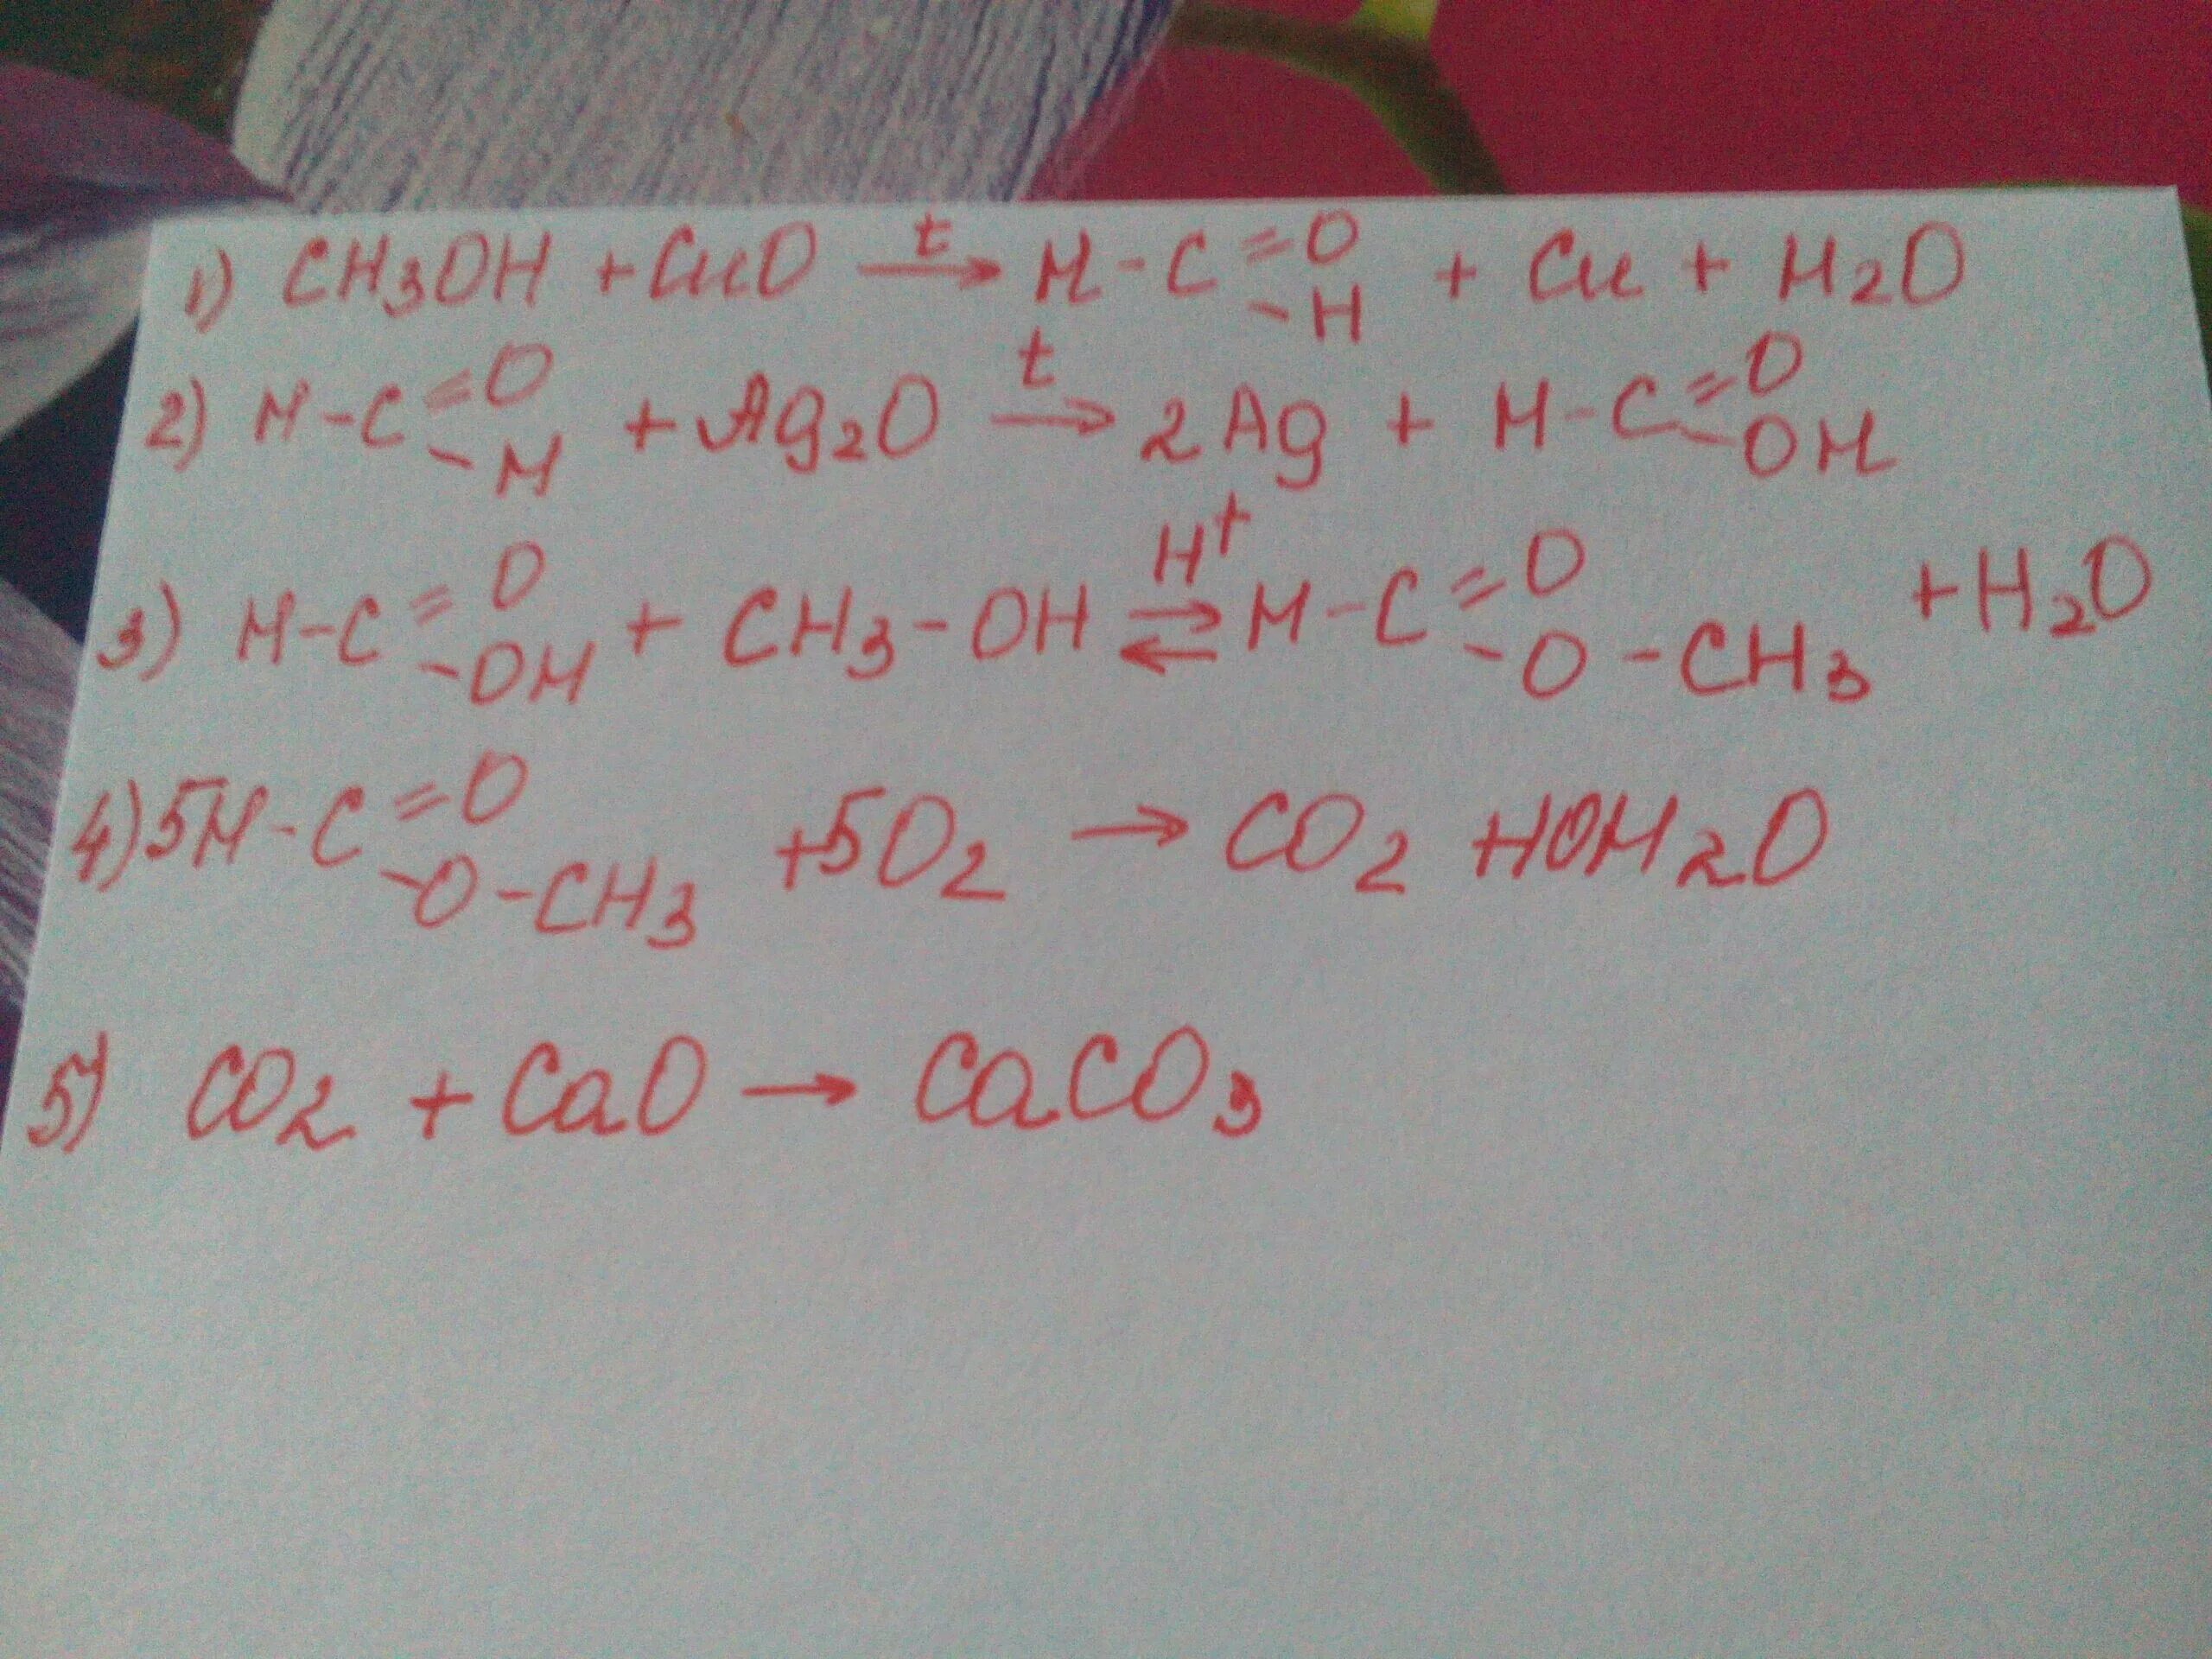 1) CH3OH + CuO →t H-C=O-H + Cu + H2O
2) H-C=O-H + Ag2O →t 2Ag + H-C=O-OH
3) H-C=O-OH + CH3-OH ⇄H+ H-C=O-O-CH3 + H2O
4) 5H-C=O-O-CH3 + 5O2 → CO2 + 10H2O
5) CO2 + CaO → CaCO3